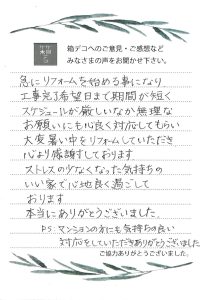 箱デコへのご意見・ご感想など
みなさまの声をお聞かせ下さい。
急にリフォームを始める事になり
工事完了希望日まで期間が短く
スケジュールが厳しいなか無理な
お願いにも心良く対応してもらい
大変暑い中をリフォームしていただき
心より感謝しております
ストレスの少なくなった気持ちの
いい家で心地良く過ごして
おります
本当にありがとうございました
P.S. マンションの方にも気持ちの良い
対応をしていただきありがとうございました
ご協力ありがとうございました。